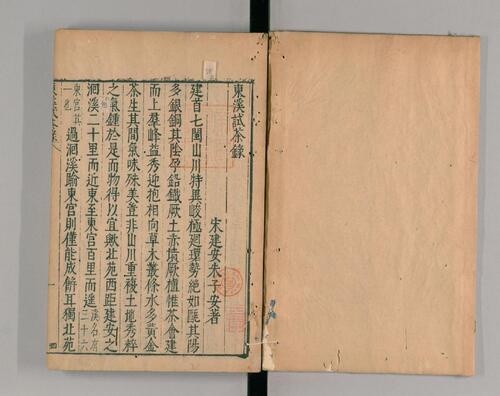 東溪試茶錄
宋建安朱子安著
建首七閩山川特異峻極廻環勢絕如甌其陽
多銀銅其陰孕鉛鐵厥土赤墳厥植惟茶會建
而上羣峰益秀迎抱相向草木叢條水多黃金
茶生其間氣味殊美豈非山川重複土地秀粹
之氣鍾於是而物得以宜歟北苑西距建安之
洄溪二十里而近東至東宮百里而遙
溪名有三十六
東宮其一也
過洄溪踰東宮則僅能成餅耳獨北苑